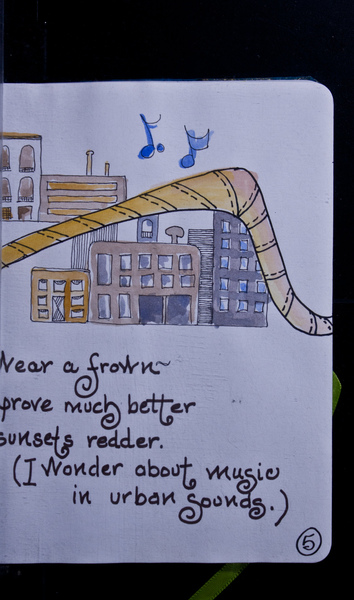 Wear a frown~
prove much better
sunsets redder.
(I wonder about music
in urban sounds.)
5